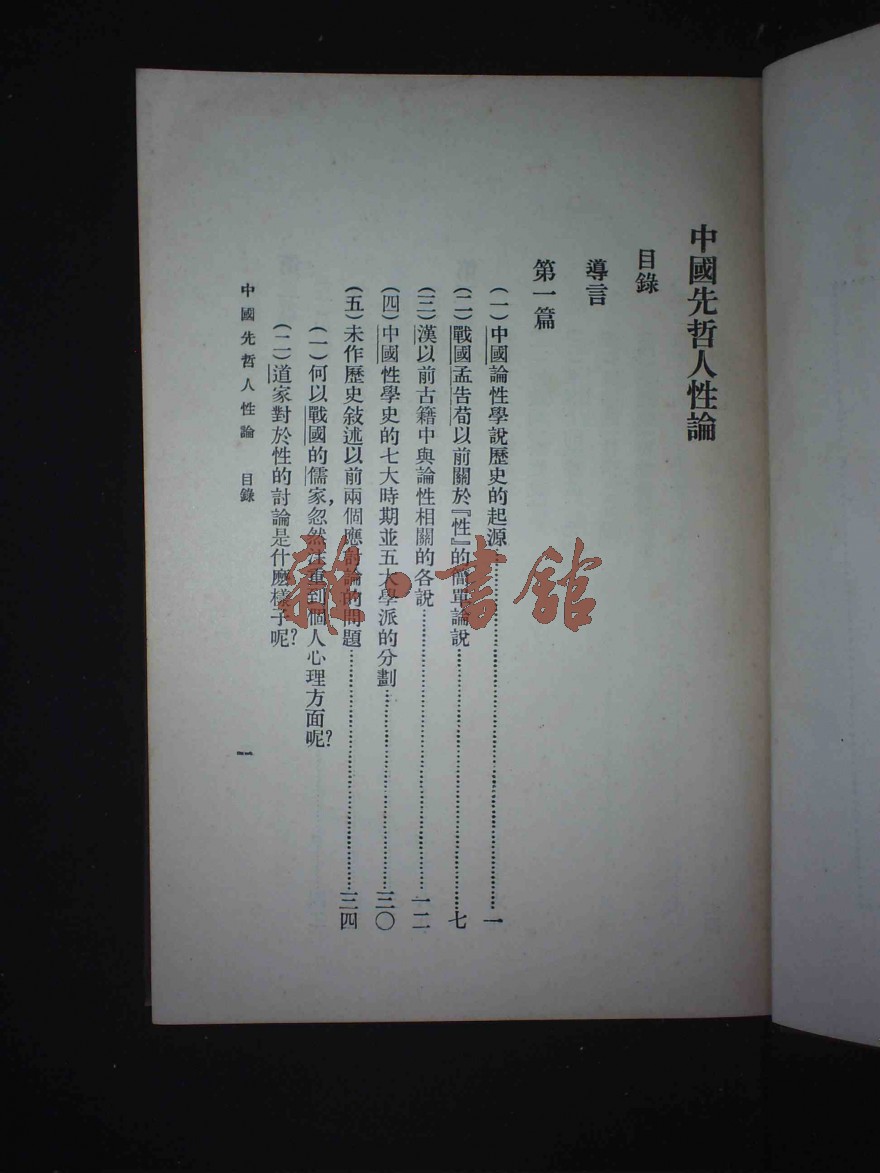 中國先哲人性論
目錄
導言
第一篇
(一)中國論性學說歷史的起源……一
(二)戰國孟告荀以前關於『性』的簡單論說……七
(三)漢以前古籍中與論性相關的各說……一二
(四)中國性學史的七大時期並五大學派的分劃……三〇
(五)未作歷史敍述以前兩個應討論的問題……三四
(一)何以戰國的儒家,忽然注重到個人心理方面呢?
(二)道家對於性的討論是什麼樣子呢?
中國先哲人性論 目錄
一
雜·書館